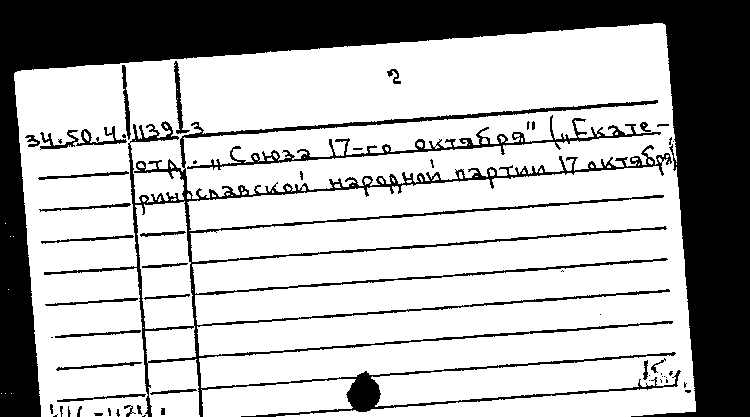 2
34.50.4.1139-3
отд. „Союза 17-го октября" („Екате-
ринославской народной партии 17 октября)